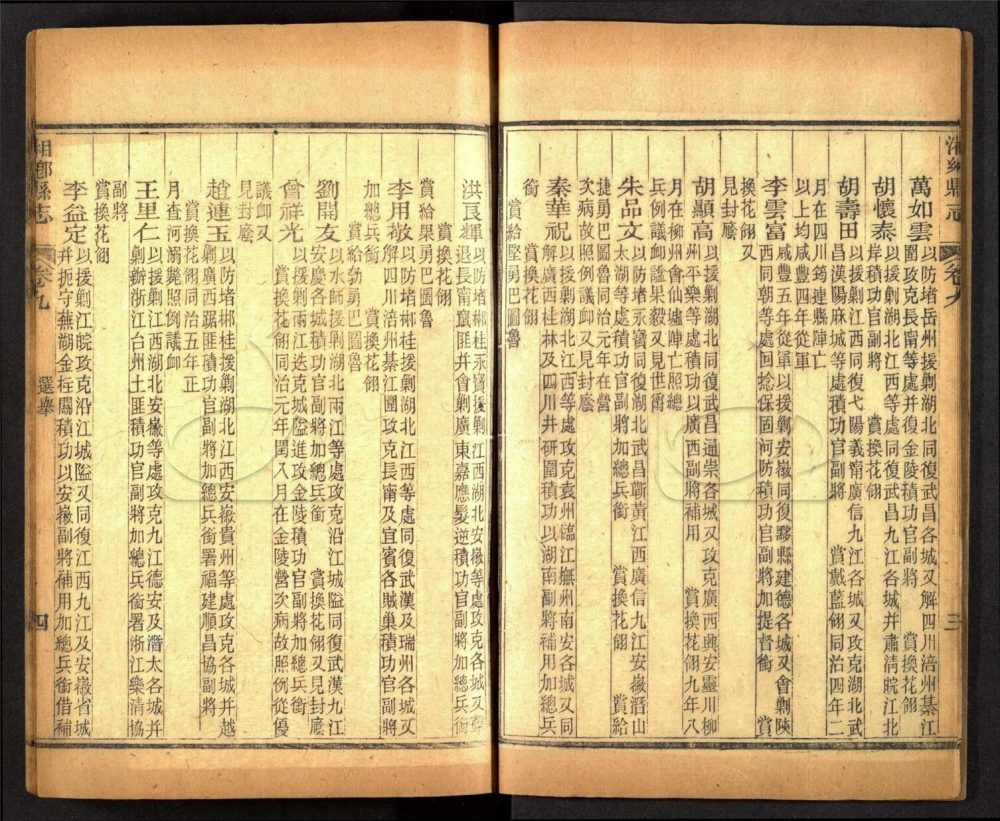 湘鄉縣志 卷九 三
萬如雲
以防堵岳州援剿湖北同復武昌各城又解四川涪州綦江
圍攻克長甯等處并復金陵積功官副將 賞換花翎
胡懷泰
以援剿湖北江西等處同復武昌九江各城并肅清皖江北
岸積功官副將 賞換花翎
胡壽田
以援剿江西同復弋陽義甯廣信九江各城又攻克湖北武
昌漢陽麻城等處積功官副將 賞戴藍翎同治四年二
月在四川筠連縣陣亡
以上均咸豐四年從軍
李雲富
咸豐五年從軍以援剿安徽同復黟縣建德各城又會剿陝
西同朝等處回捻保固河防積功官副將加提督銜 賞
換花翎又
見封廕
胡顯高
以援剿湖北同復武昌通崇各城又攻克廣西興安靈川柳
州平樂等處積功以廣西副將補用 賞換花翎九年八
月在柳州會仙墟陣亡照總
兵例議卹諡果毅又見世冑
朱品文
以防堵永寶同復湖北武昌蘄黃江西廣信九江安徽潛山
太湖等處積功官副將加總兵銜 賞換花翎 賞給
捷勇巴圖魯同治元年在營
次病故照例議卹又見封廕
秦華祝
以援剿湖北江西等處攻克袁州臨江撫州南安各城又同
解廣西桂林及四川井研圍積功以湖南副將補用加總兵
銜 賞換花翎
賞給堅勇巴圖魯
洪艮運
以防堵郴桂永寶援剿江西湖北安徽等處攻克各城又擊
退長甯竄匪并會剿廣東嘉應髮逆積功官副將加總兵銜
賞換花翎
賞給果勇巴圖魯
李用敬
以防堵郴桂援剿湖北江西等處同復武漢及瑞州各城又
解四川涪州綦江圍攻克長甯及宜賓各賊巢積功官副將
加總兵銜 賞換花翎
賞給勃勇巴圖魯
劉開友
以水師援剿湖北兩江等處攻克沿江城隘同復武漢九江
安慶各城積功官副將加總兵銜 賞換花翎又見封廕
曾祥光
以援剿兩江迭克城隘進攻金陵積功官副將加總兵銜
賞換花翎同治元年閏八月在金陵營次病故照例從優
議卹又
見封廕
趙連玉
以防堵郴桂援剿湖北江西安徽貴州等處攻克各城并越
剿廣西踞匪積功官副將加總兵銜署福建順昌協副將
賞換花翎同治五年正
月查河溺斃照例議卹
王里仁
以援剿江西湖北安徽等處攻克九江德安及潛太各城并
剿辦浙江台州土匪積功官副將加總兵銜署浙江樂清協
副將
賞換花翎
李益定
以援剿江皖攻克沿江城隘又同復江西九江及安徽省城
并扼守蕪湖金柱關積功以安徽副將補用加總兵銜借補
湘鄉縣志 卷九 選舉 四